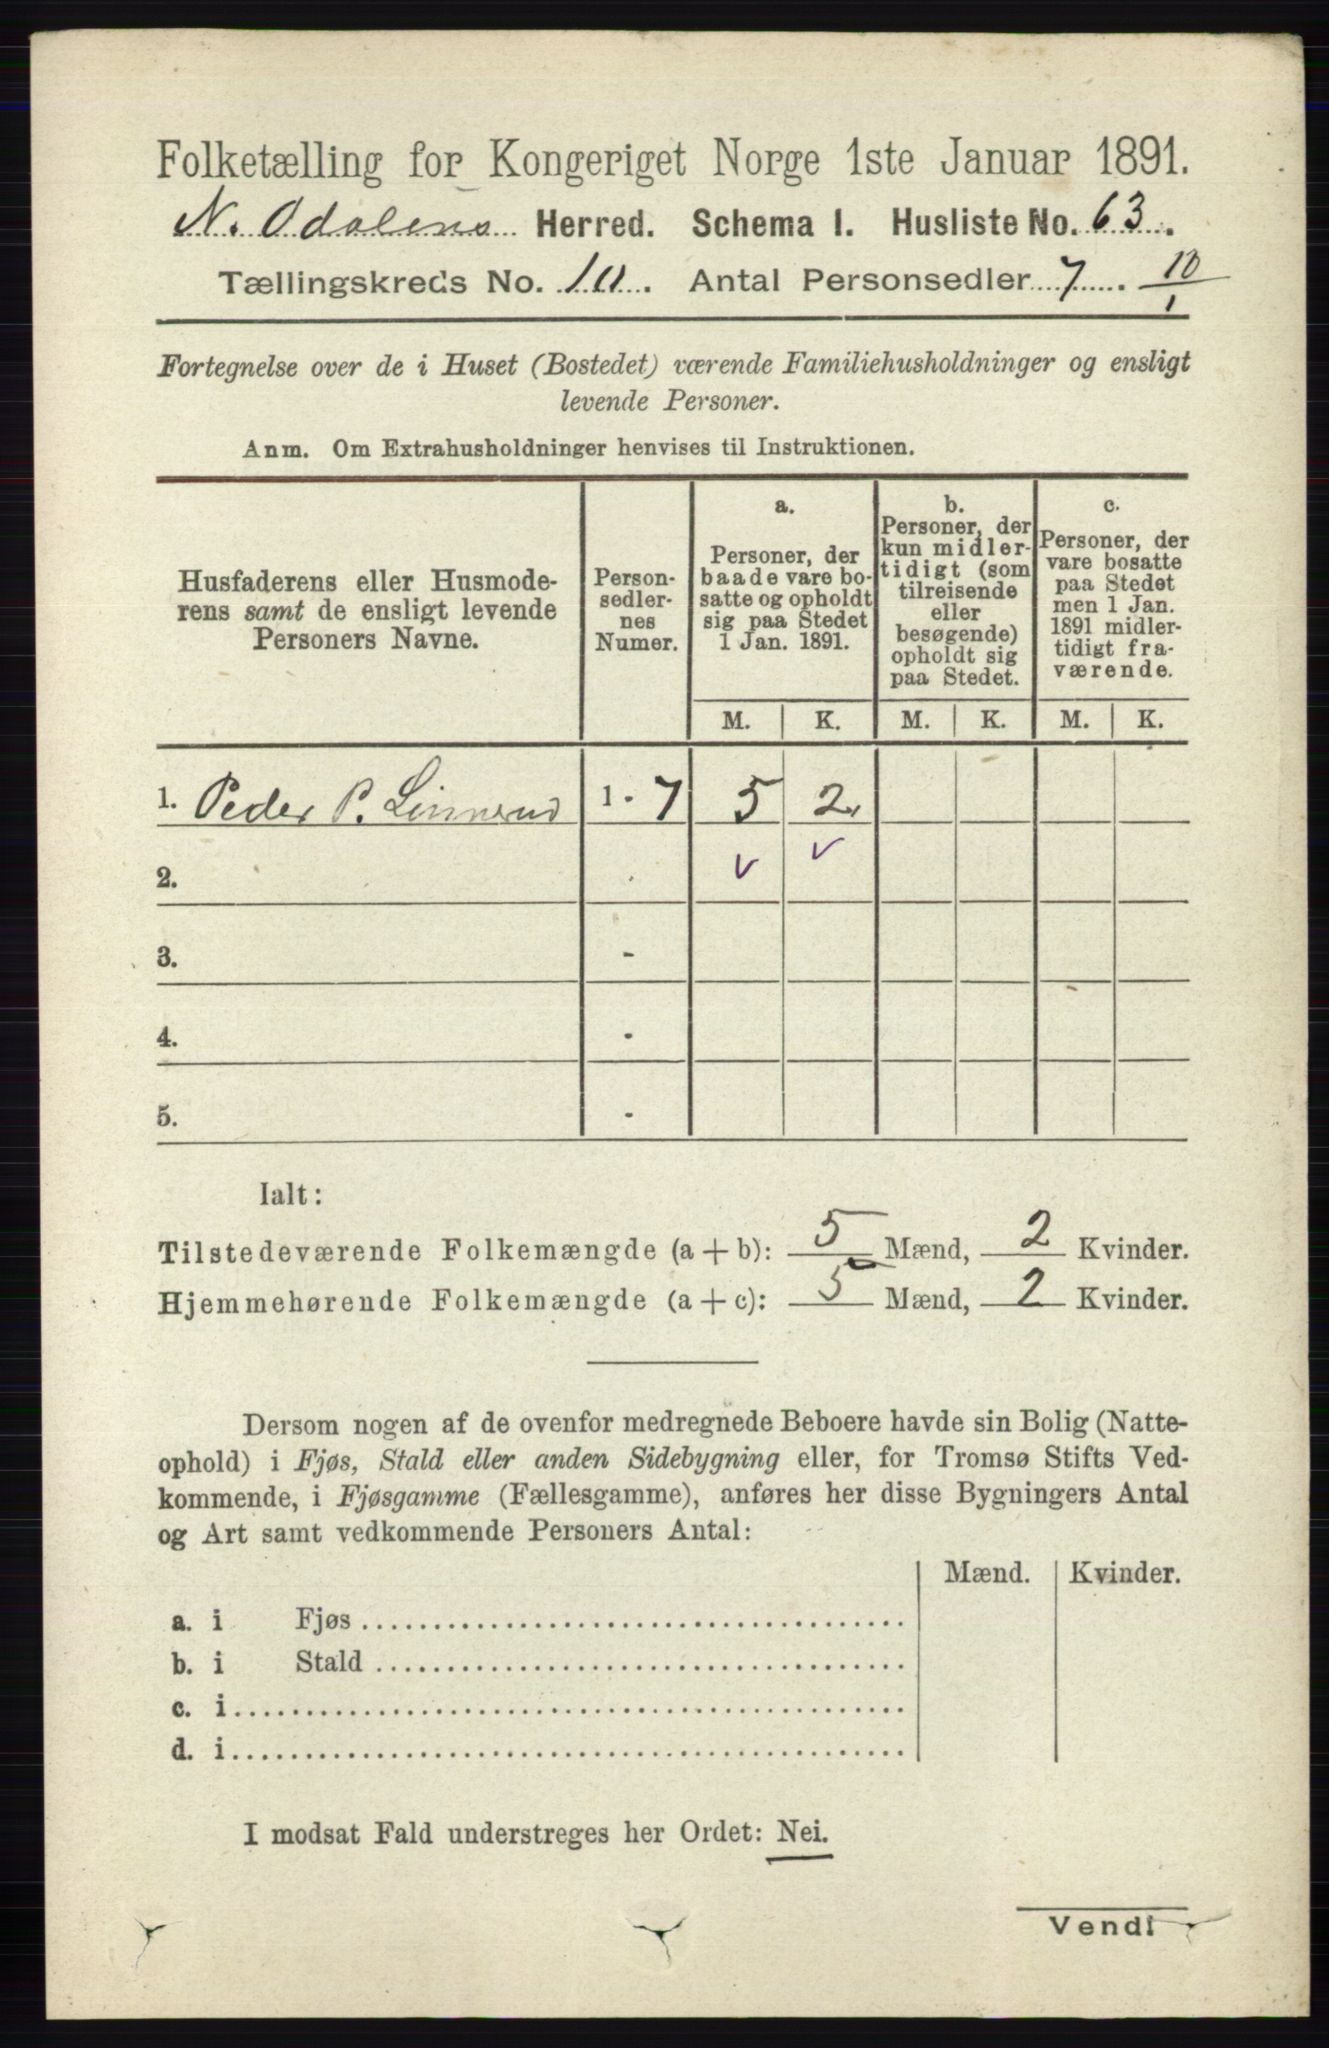 Folketælling for Kongeriget Norge 1ste Januar 1891.
N. Odalens Herred. Schema I. Husliste No. 63.
Tællingskreds No. 10. Antal Personsedler 7. 10/1
Fortegnelse over de i Huset (Bostedet) værende Familiehusholdninger og ensligt
levende Personer.
Anm. Om Extrahusholdninger henvises til Instruktionen.
Husfaderens eller Husmode-
rens samt de ensligt levende
Personers Navne.
Person-
sedler-
nes
Numer.
a.
Personer, der
baade vare bo-
satte og opholdt
sig paa Stedet
1 Jan. 1891.
b.
Personer, der
kun midler-
tidigt (som
tilreisende
eller
besøgende)
opholdt sig
paa Stedet.
c.
Personer, der
vare bosatte
paa Stedet
men 1 Jan.
1891 midler-
tidigt fra-
værende.
M. K. M. K. M. K.
1. Peder P. Linnerud 1 - 7 5 2
2.
3. -
4. -
5. -
Ialt:
Tilstedeværende Folkemængde (a + b): 5 Mænd, 2 Kvinder.
Hjemmehørende Folkemængde (a + c): 5 Mænd, 2 Kvinder.
Dersom nogen af de ovenfor medregnede Beboere havde sin Bolig (Natte-
ophold) i Fjøs, Stald eller anden Sidebygning eller, for Tromsø Stifts Ved-
kommende, i Fjøsgamme (Fællesgamme), anføres her disse Bygningers Antal
og Art samt vedkommende Personers Antal:
Mænd. Kvinder.
a. i Fjøs
b. i Stald
c. i
d. i
I modsat Fald understreges her Ordet: Nei.
Vend!